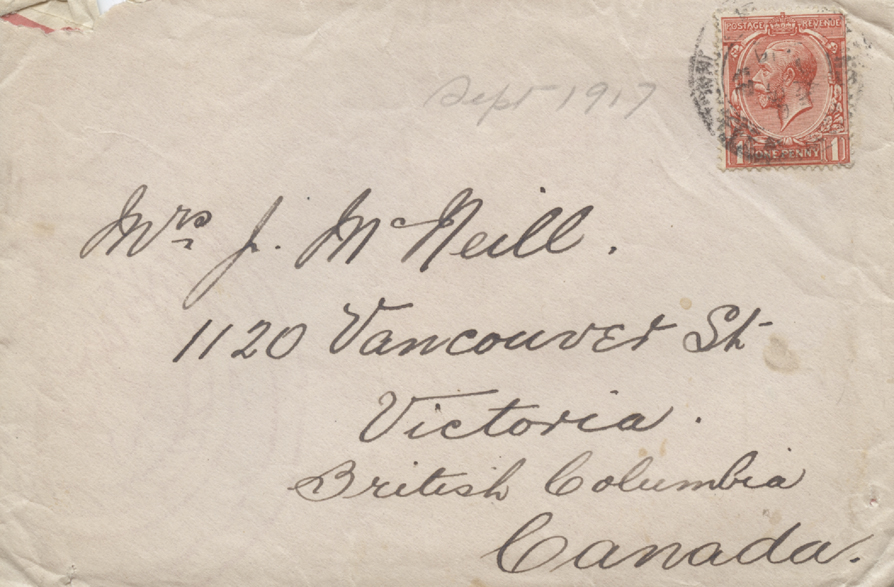 POSTAGE REVENUE
1 ONE PENNY 1
Sept 1917
Mrs J. McNeill.
1120 Vancouver St
Victoria.
British Columbia
Canada.